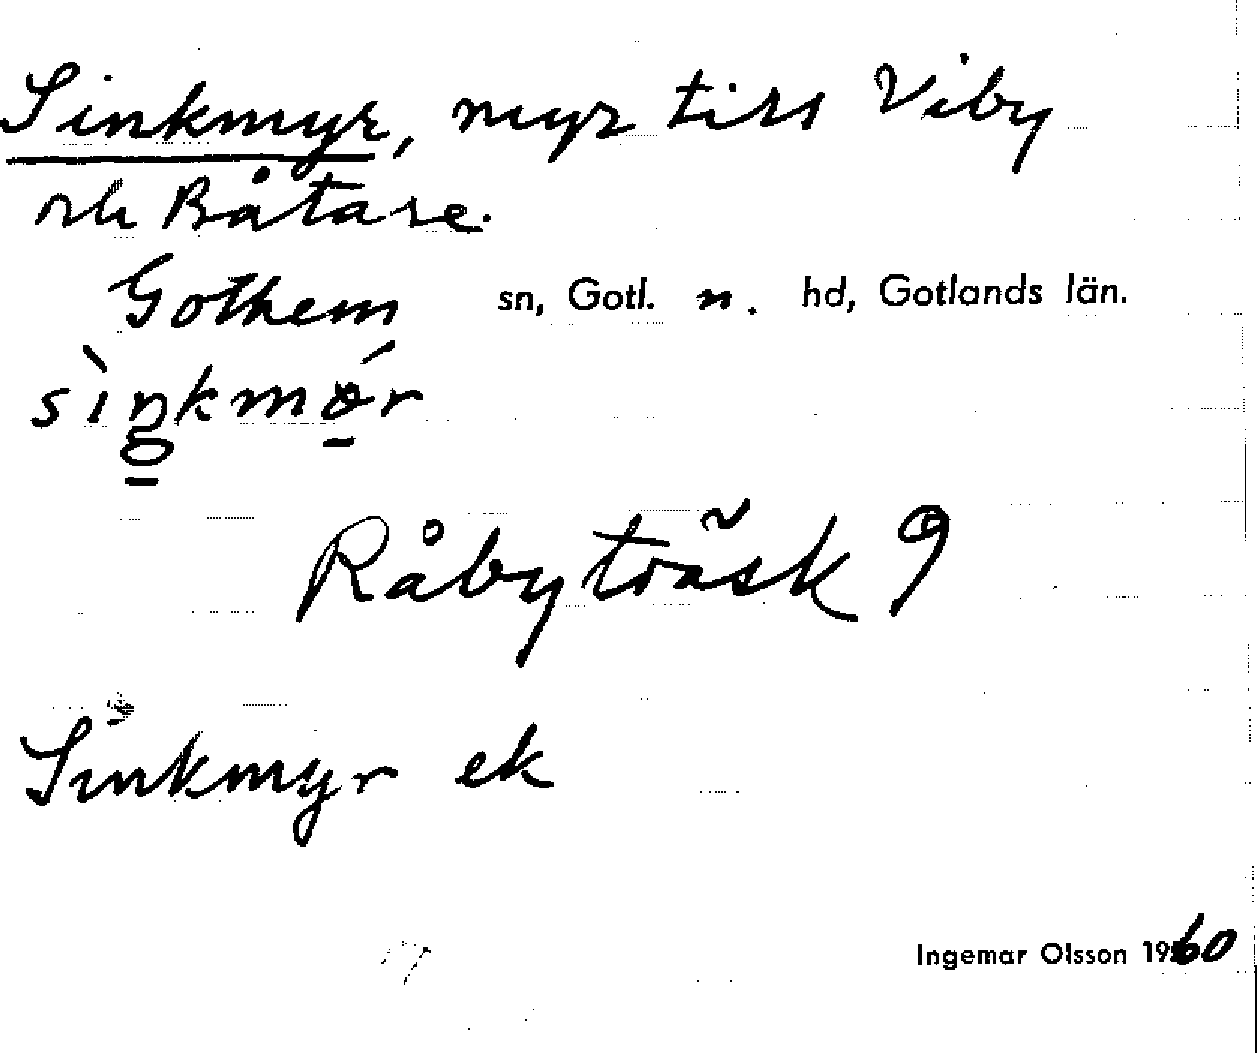 Sinkmyr, myr till Viby
och Båtare.
Gothem sn, Gotl. n. hd, Gotlands län.
sìŋkmǿr
Råbyträsk 9
Sinkmyr ek
Ingemar Olsson 1960